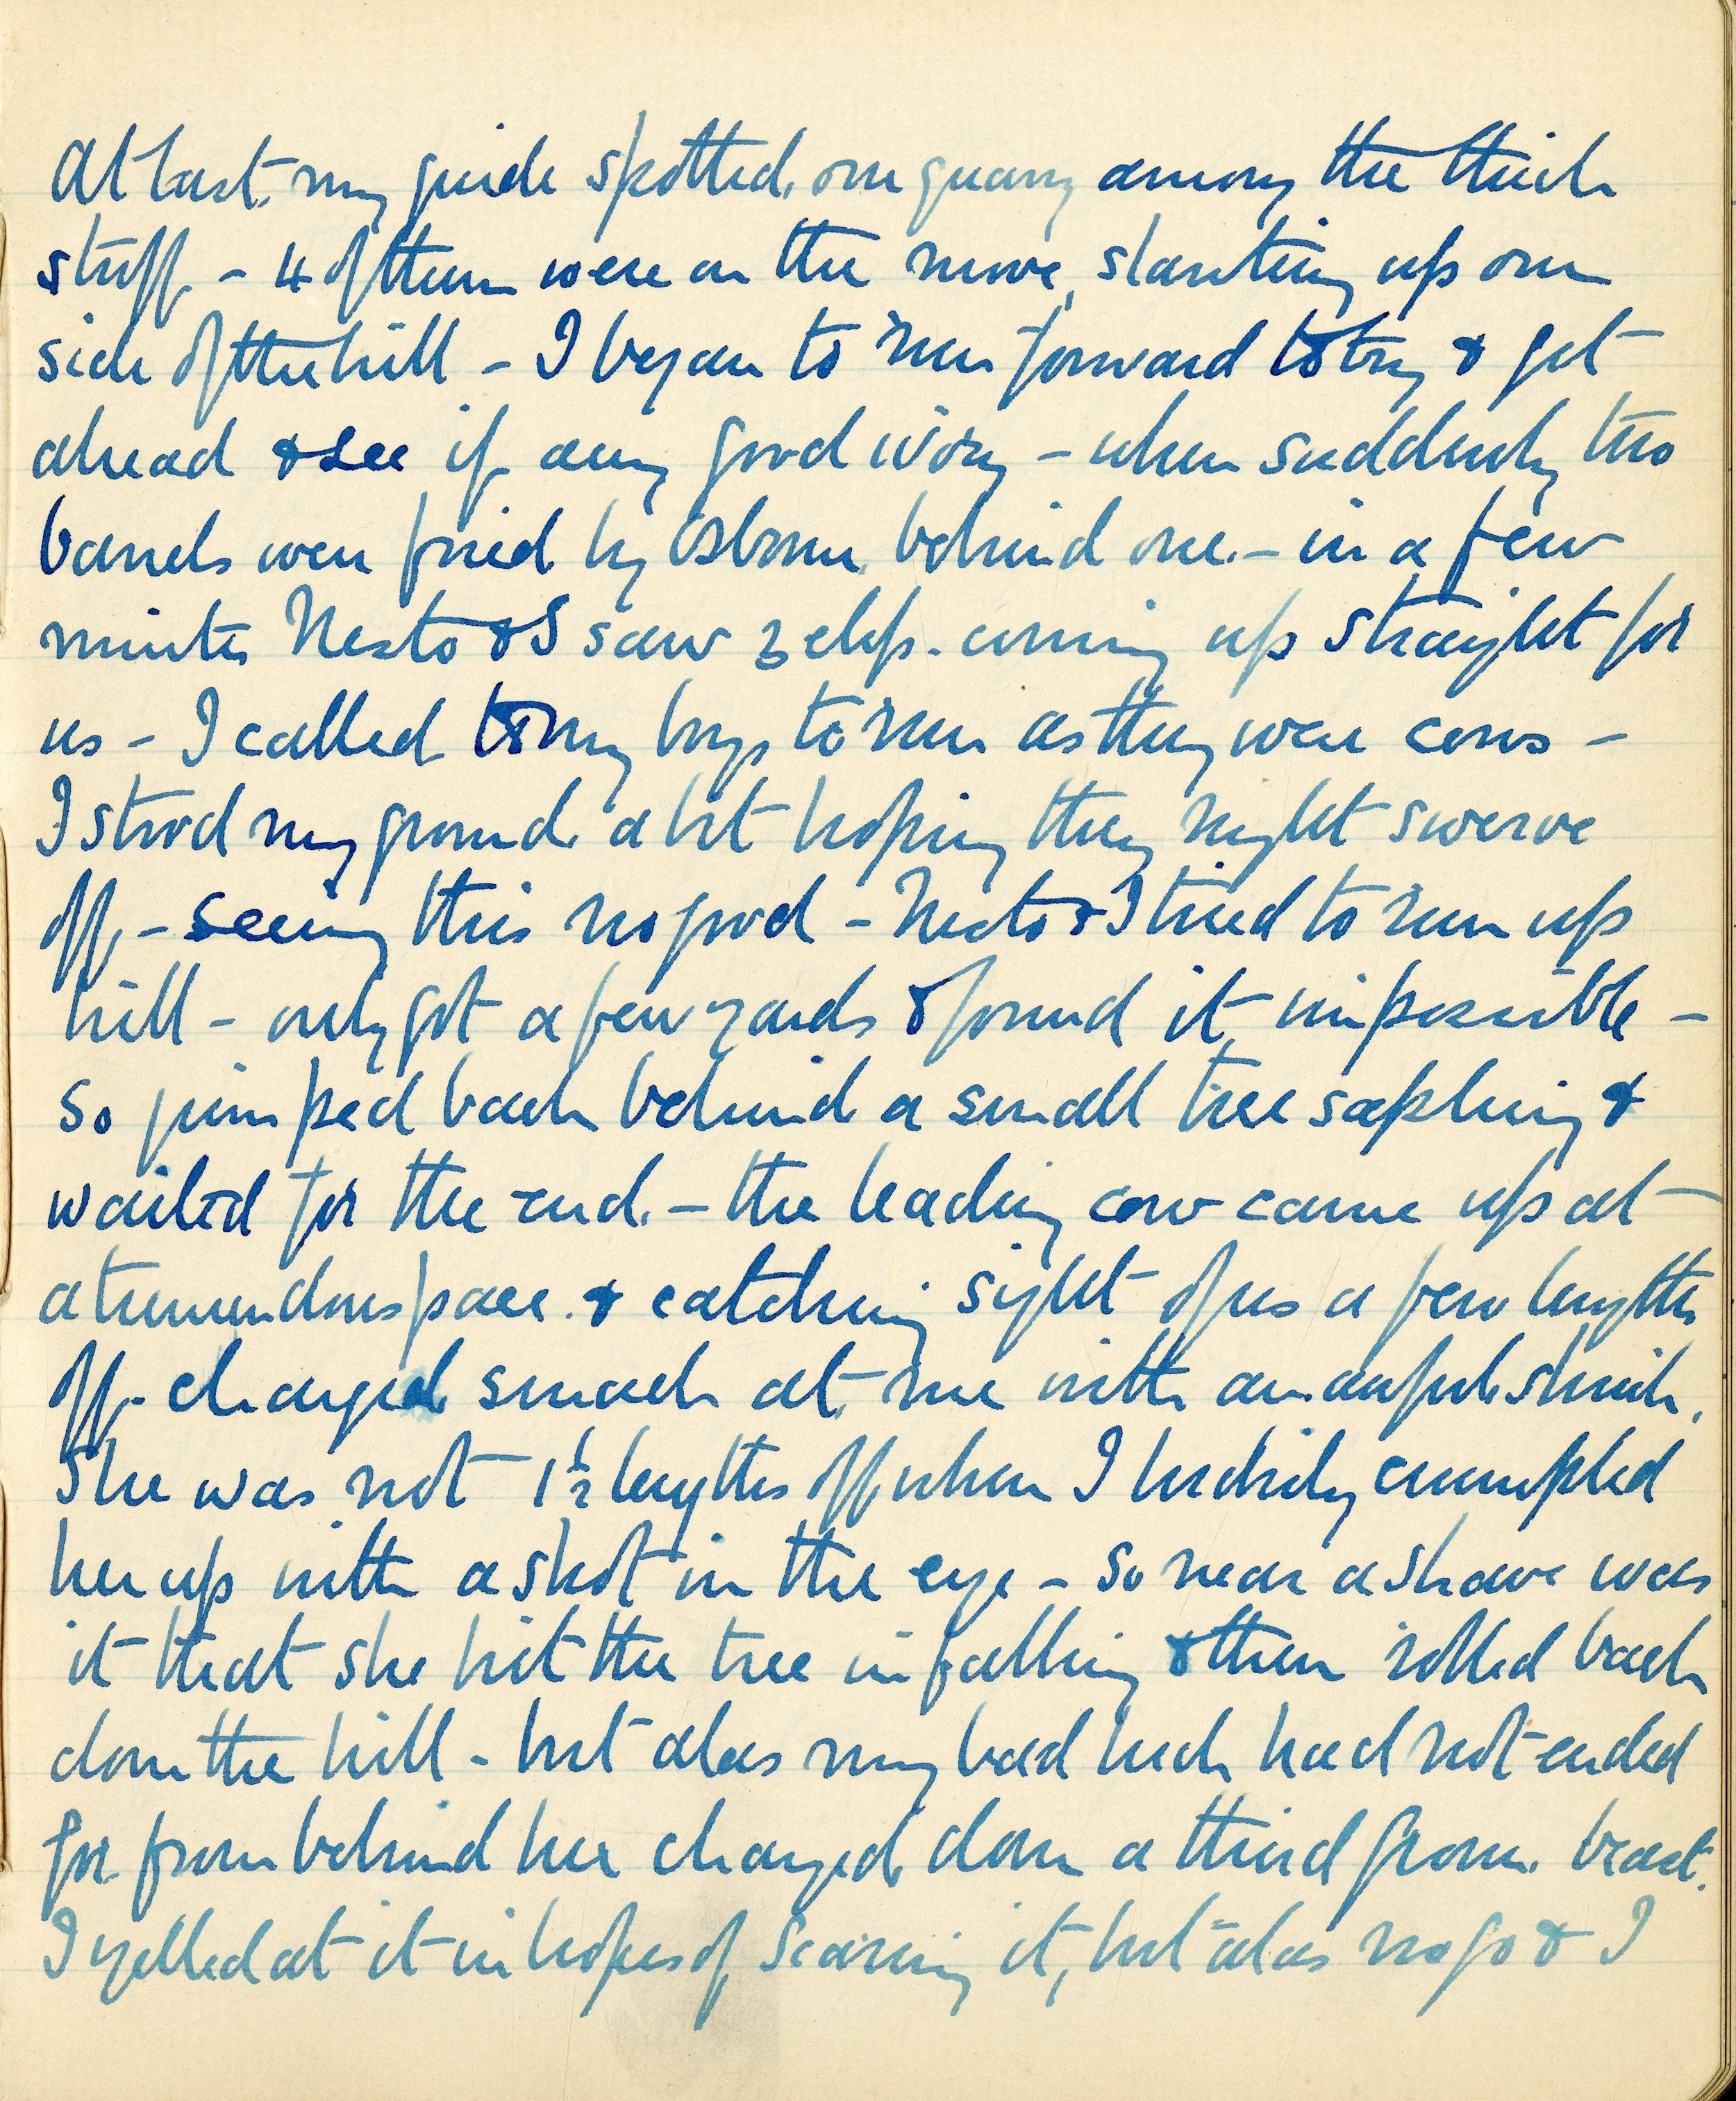 At last my guide spotted our quarry among the thick
stuff - 4 of them were on the move, slanting up our
side of the hill - I began to run forward to try & get
ahead & see if any good ivory - when suddenly two
barrels were fired by Osborne behind me. - in a few
minutes Nesto & I saw 3 elep. coming up straight for
us - I called to my boys to run as they were cows -
I stood my ground a bit hoping they might swerve
off, - seeing this no good - Nesto & I tried to run up
hill - only got a few yards & found it impossible -
so jumped back behind a small tree sapling &
waited for the end. - the leading cow came up at
a tremendous pace. & catching sight of us a few lengths
off - charged smack at me with an awful shriek.
She was not 1½ lengths off when I luckily crumpled
her up with a shot in the eye - so near a shave was
it that she hit the tree in falling & then rolled back
down the hill - but alas my bad luck had not ended
for from behind her charged down a third great beast.
I yelled at it in hopes of scaring it, but alas no go & I